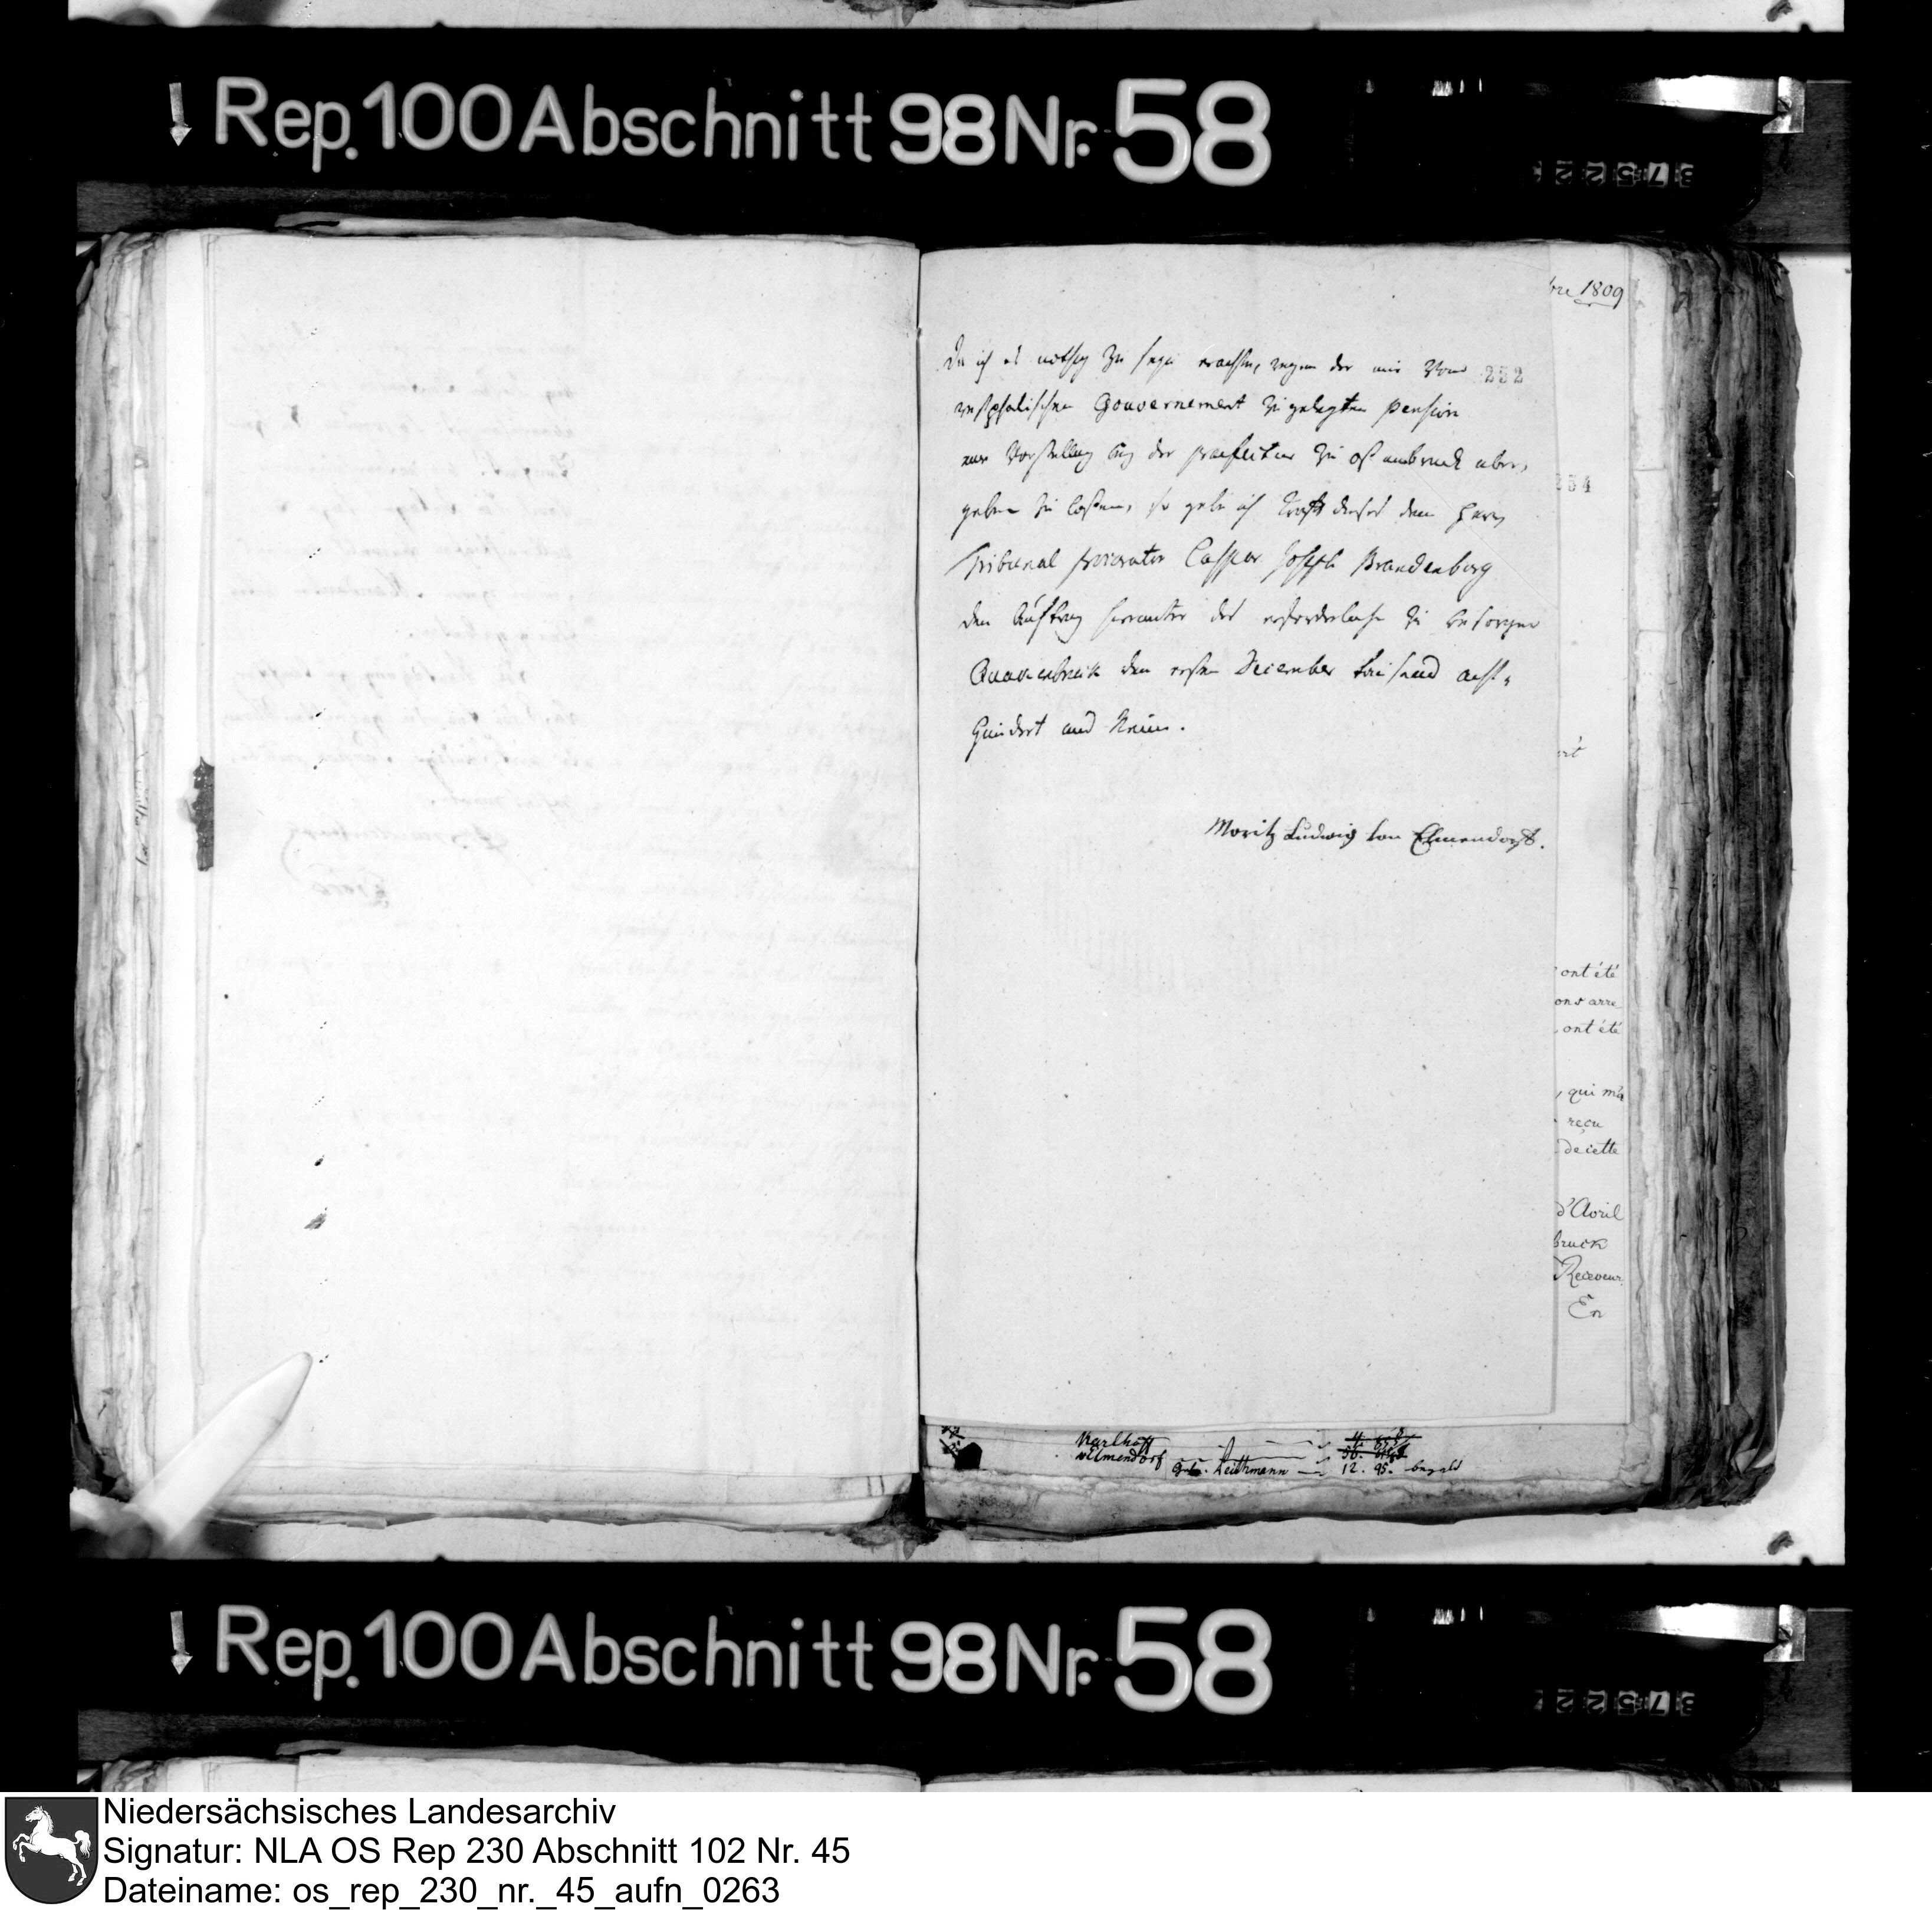 Rep. 100 Abschnitt 98 Nr. 58
37522
bre 1809
Da ich es nothig zu seyn erachte, wegen der mir vom
252
westphalischen Gouvernement zugelegten pension
eine Vorstellung bey der praefectur zu osnabruck uber,
geben zu lassen, so gebe ich kraft dieses dem Herrn
254
Tribunal procurator Casper Joseph Brandenburg
den Auftrag hierunter das erforderliche zu besorgen
Quakenbruck den ersten December tausend acht,
hundert und Neun.
Moritz Ludwig von Elmendorff.
ont été
ons arre
ont été
, qui m'a
reçu
de cette
d'Avril
bruck
Receveur
En
Karlhoff
v Elmendorf
Leithmann 12. 95. bezahlt
Rep. 100 Abschnitt 98 Nr. 58
37522
Niedersächsisches Landesarchiv
Signatur: NLA OS Rep 230 Abschnitt 102 Nr. 45
Dateiname: os_rep_230_nr._45_aufn_0263